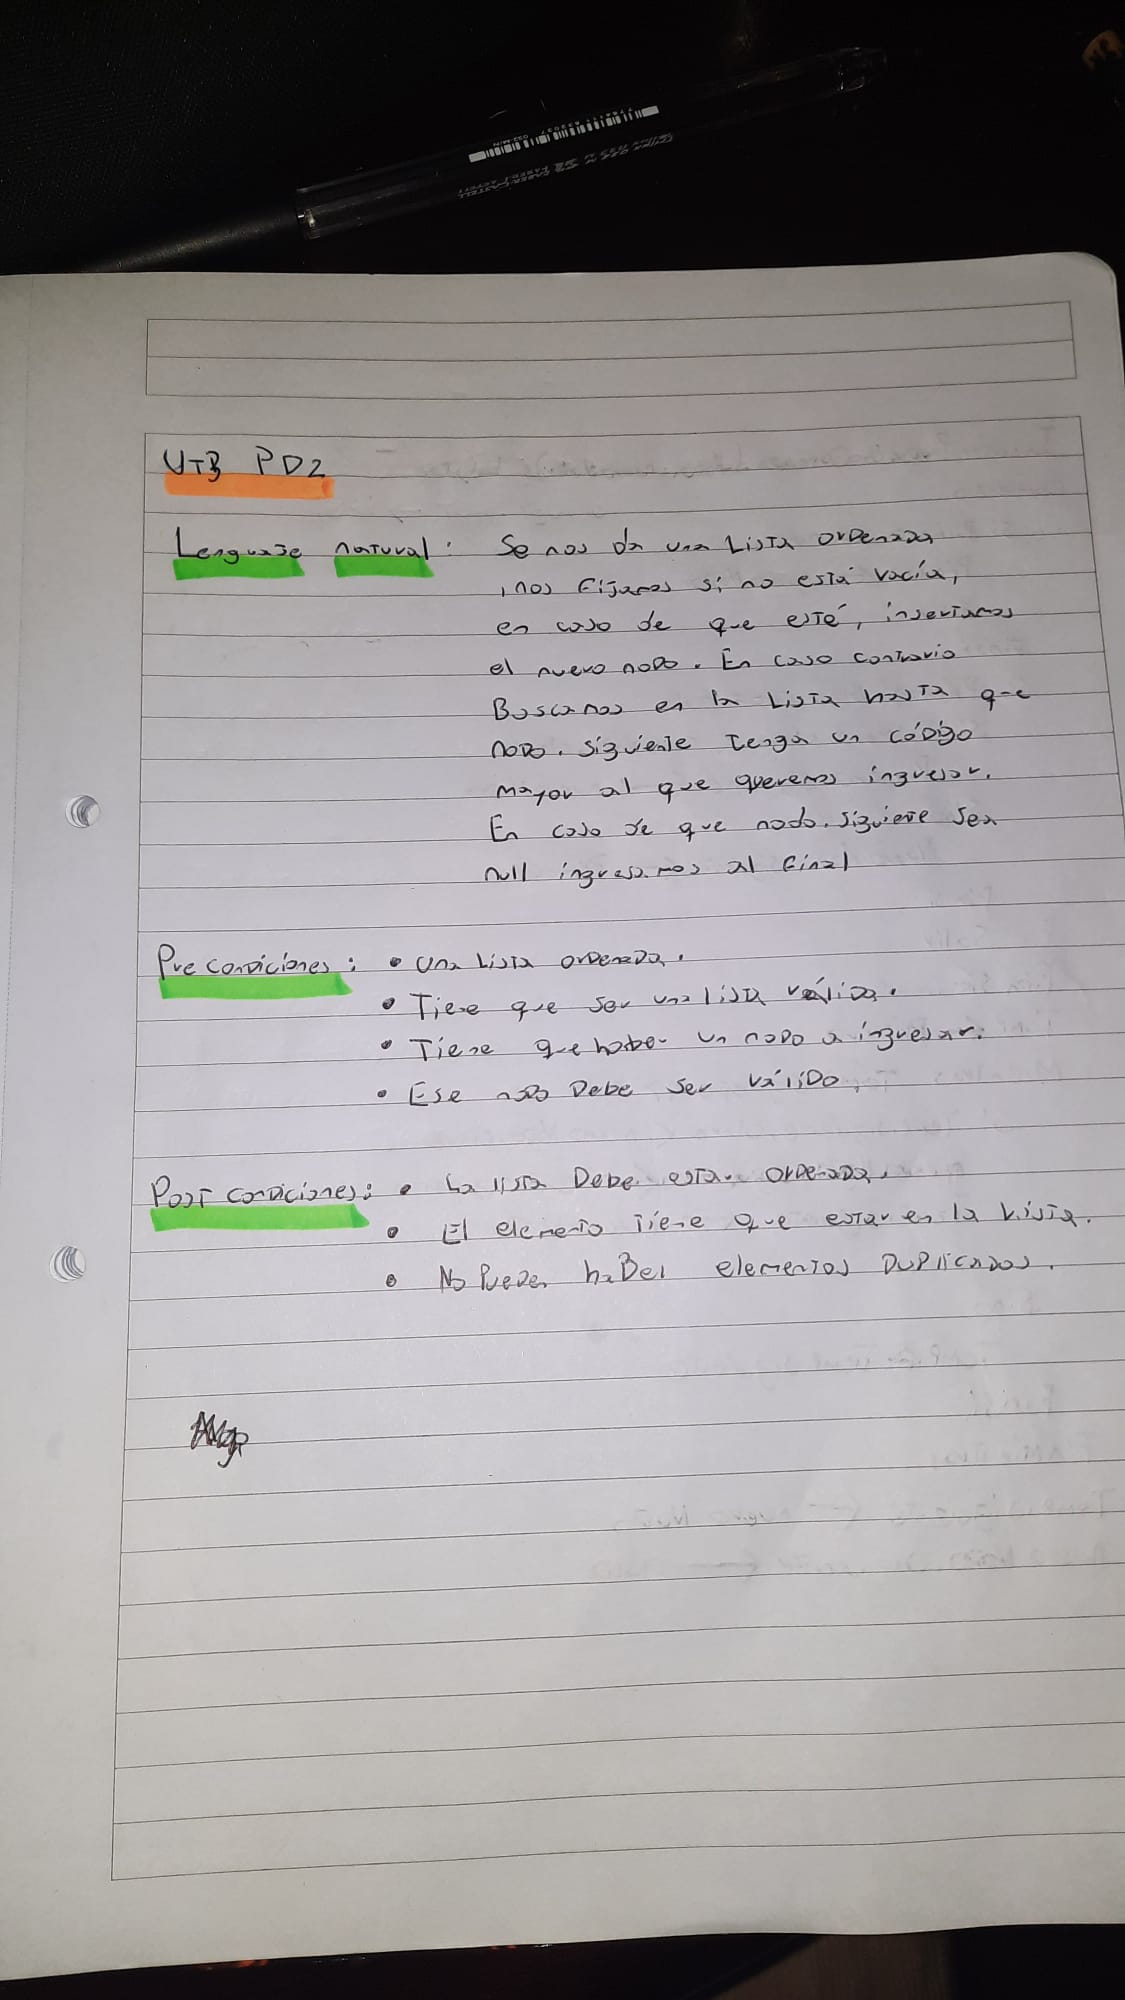 UT3 PD2
Lenguaje natural: Se nos da una Lista ordenada
, nos fijamos si no está vacía,
en caso de que esté, insertamos
el nuevo nodo. En caso contrario
Buscamos en la Lista hasta que
nodo.siguiente tenga un código
mayor al que queremos ingresar.
En caso de que nodo.siguiete sea
null ingresamos al final
Precondiciones: • Una Lista ordenada.
• Tiene que ser una lista válida.
• Tiene que haber un nodo a ingresar.
• Ese nodo Debe ser válido.
Post condiciones: • La lista Debe estar ordenada.
• El elemento tiene que estar en la Lista.
• No Pueden haber elementos Duplicados.